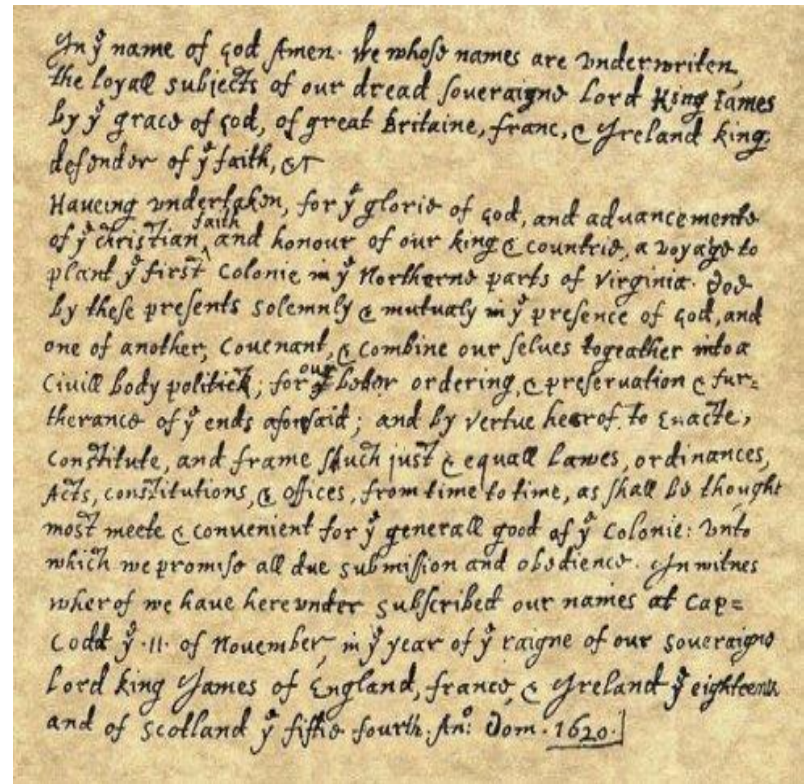 In yͤ name of god Amen· We whose names are vnderwriten,
the loyall subjects of our dread soueraigne Lord King Iames
by yͤ grace of god, of great Britaine, franc, & Ireland king,
defender of yͤ faith, &c
Haueing vndertaken, for yͤ glorie of god, and aduancemente
of yͤ christian ^faith and honour of our king & countrie, a voyage to
plant yͤ first colonie in yͤ Northerne parts of Virginia· doe
by these presents solemnly & mutualy in yͤ presence of god, and
one of another, couenant, & combine our selues togeather into a
ciuill body politick; for our beter ordering, & preseruation & fur=
therance of yͤ ends aforesaid; and by vertue hearof to enacte,
constitute, and frame shuch just & equall lawes, ordinances,
Acts, constitutions, & offices, from time to time, as shall be thought
most meete & conuenient for yͤ generall good of yͤ Colonie: vnto
which we promise all due submission and obedience. In witnes
wherof we haue herevnder subscribed our names at Cap=
Codd yͤ ·11· of Nouember, in yͤ year of yͤ raigne of our soueraigne
Lord king James of England, france, & Ireland yͤ eighteenth
and of Scotland yͤ fiftie fourth. Anͦ: Dom· 1620·]